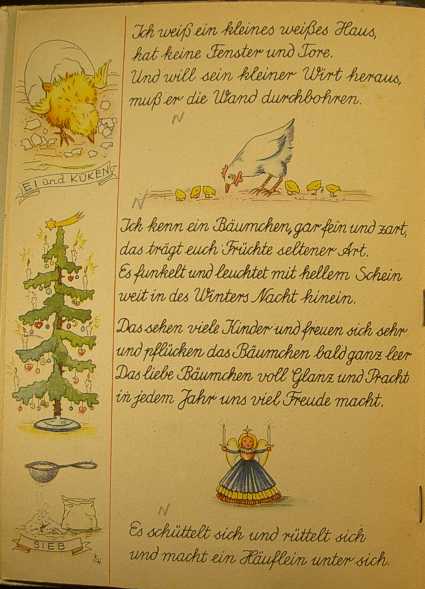 Ich weiß ein kleines weißes Haus,
hat keine Fenster und Tore.
Und will sein kleiner Wirt heraus,
muß er die Wand durchbohren.
N
EI und KÜKEN
N
Ich kenn ein Bäumchen, gar fein und zart,
das trägt euch Früchte seltener Art.
Es funkelt und leuchtet mit hellem Schein
weit in des Winters Nacht hinein.
Das sehen viele Kinder und freuen sich sehr
und pflücken das Bäumchen bald ganz leer
Das liebe Bäumchen voll Glanz und Pracht
in jedem Jahr uns viel Freude macht.
N
Es schüttelt sich und rüttelt sich
und macht ein Häuflein unter sich.
SIEB